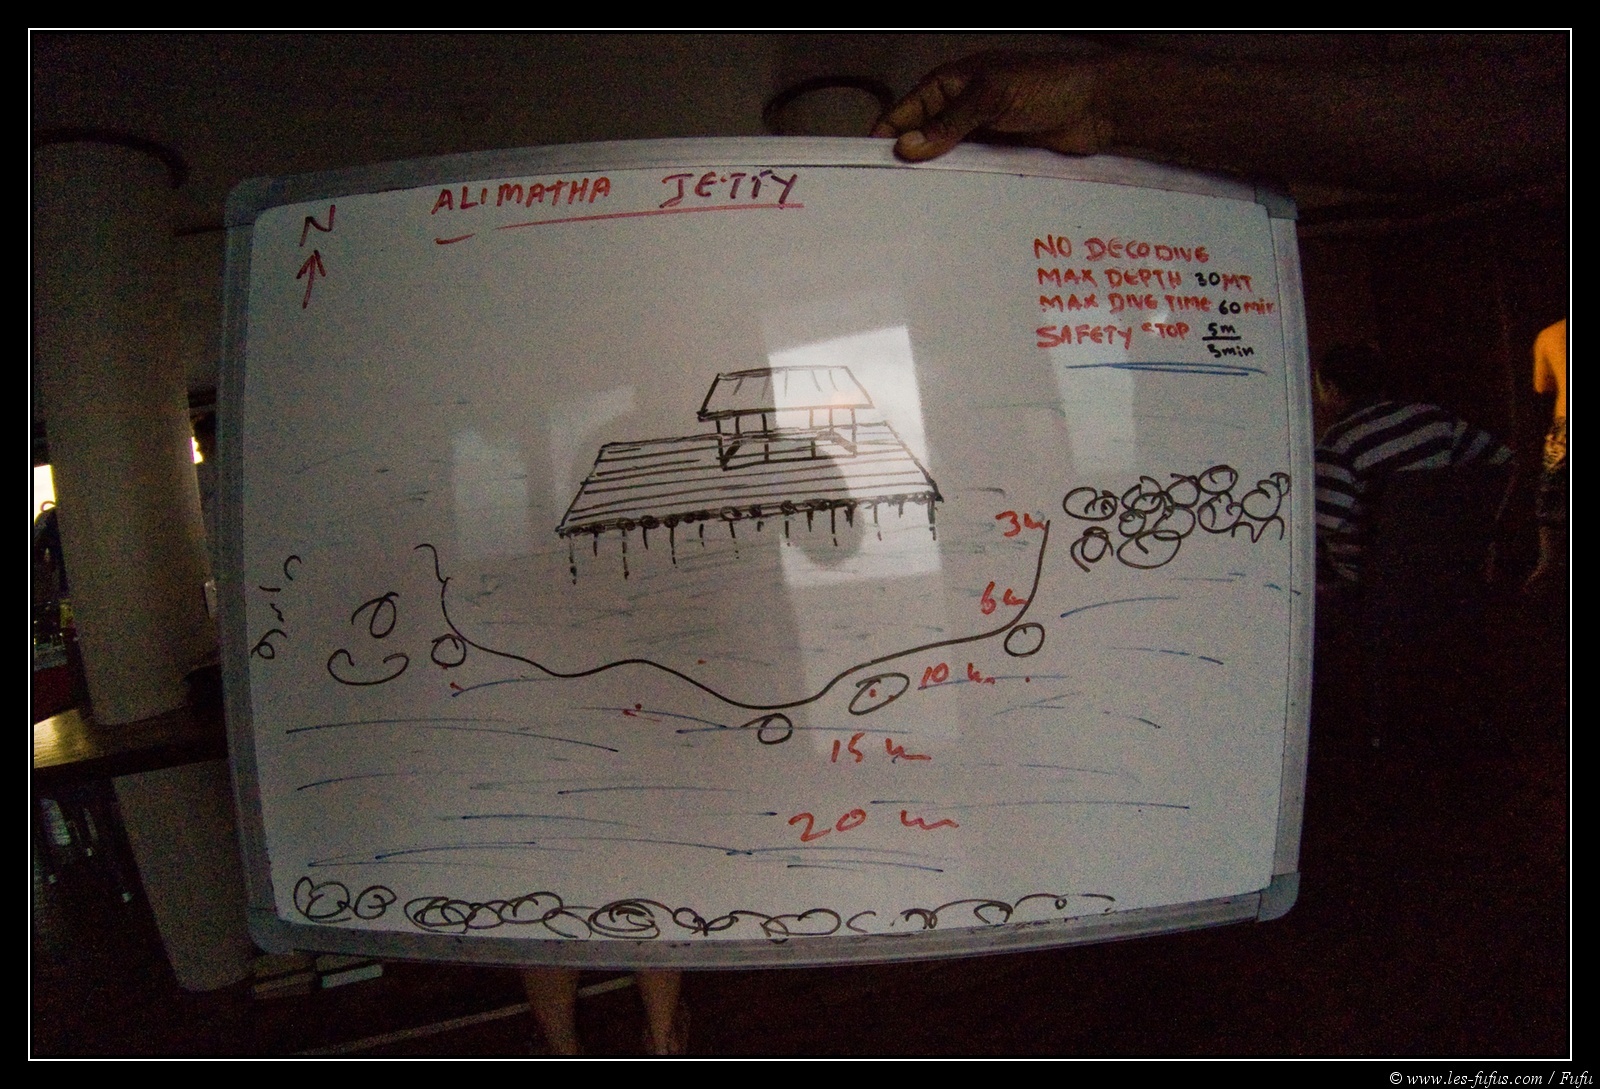 ALIMATHA JETTY
N
NO DECO DIVE
MAX DEPTH 30MT
MAX DIVE TIME 60 min
SAFETY STOP 5m
3min
3m
6m
10 m
15 m
20 m
© www.les-fufus.com / Fufu